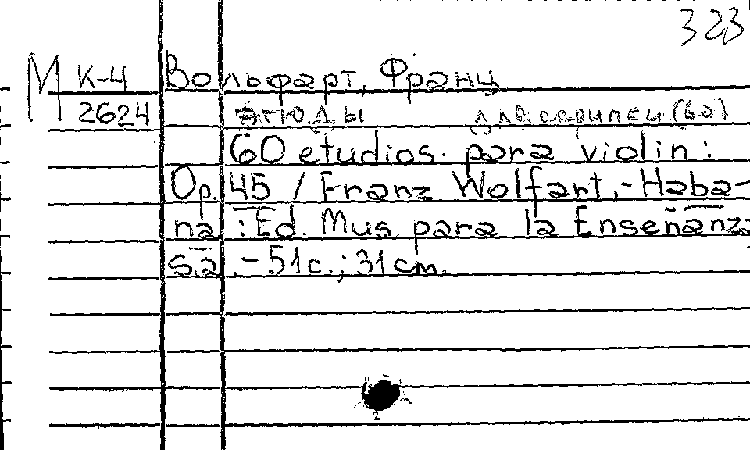 323
М К-4 Вольфарт, Франц
2624 Этюды для скрипки (60)
60 etudios para violin:
Op. 45 / Franz Wolfart.-Haba-
na: Ed. Mus para la Enseñanza
s.a.-51c.; 31cm.